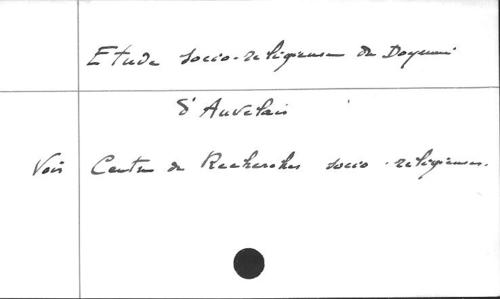 Etude socio-religieuse du Doyenné
d'Auvelais
Voir Centre de Recherches socio-religieuses.